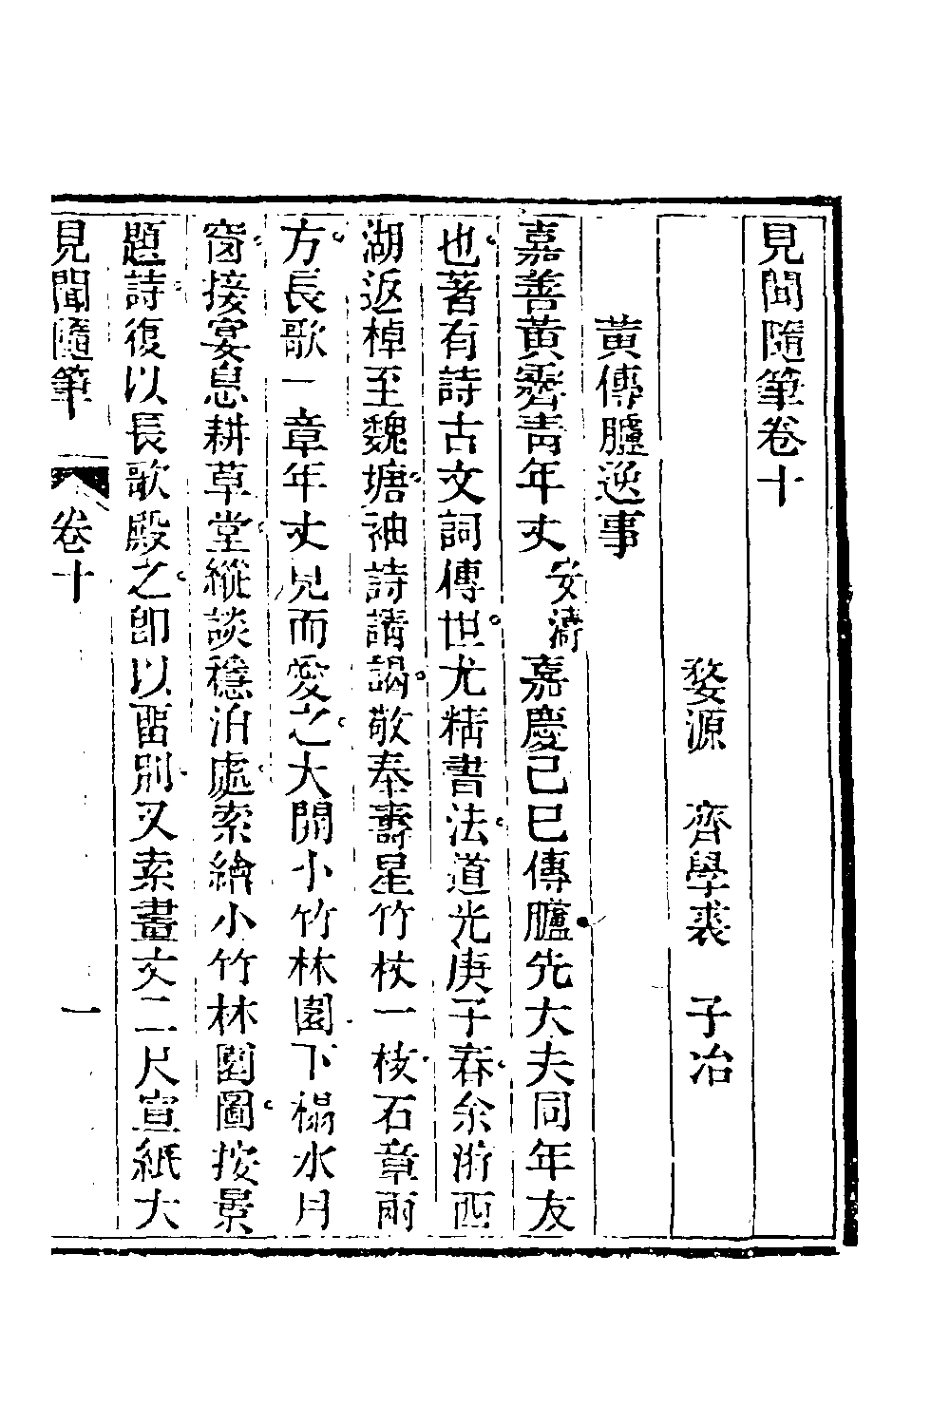 見聞隨筆卷十
婺源　齊學裘　子冶
黃傳臚逸事
嘉善黃霽青年丈安濤嘉慶己巳傳臚先大夫同年友
也著有詩古文詞傳世尤精書法道光庚子春余游西
湖返棹至魏塘袖詩請謁敬奉壽星竹杖一枝石章兩
方長歌一章年丈見而愛之大開小竹林園下榻水月
窗接宴息耕草堂縱談穩泊處索繪小竹林園圖按景
題詩復以長歌殿之卽以畱別又索畫丈二尺宣紙大
見聞隨筆　卷十　一